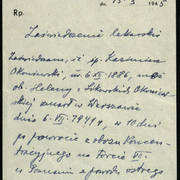 dn. 15.3 1945
Rp.
Zaświadczenie lekarskie
Zaświadczam, iż śp. Kazimierz
ur. 6.XI 1886, mąż
ob. Heleny z Sikorskich
skiej zmarł w Warszawie
dnia 6-VII-1941 r., w 10 dni
po powrocie z obozu koncen-
tracyjnego na forcie VII-
w Poznaniu z powodu ostrego